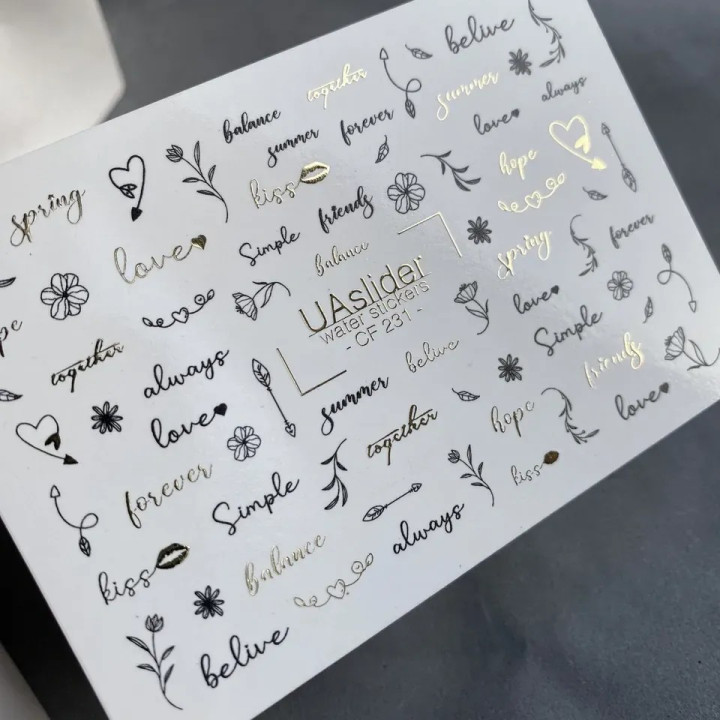 belive
together
balance
summer
always
summer
forever
love
kiss
hope
spring
friends
Simple
love
Balance
spring
forever
UAslider
water stickers
- CF 231 -
love
Simple
together
always
belive
friends
summer
love
together
hope
love
forever
Simple
kiss
always
kiss
Balance
belive